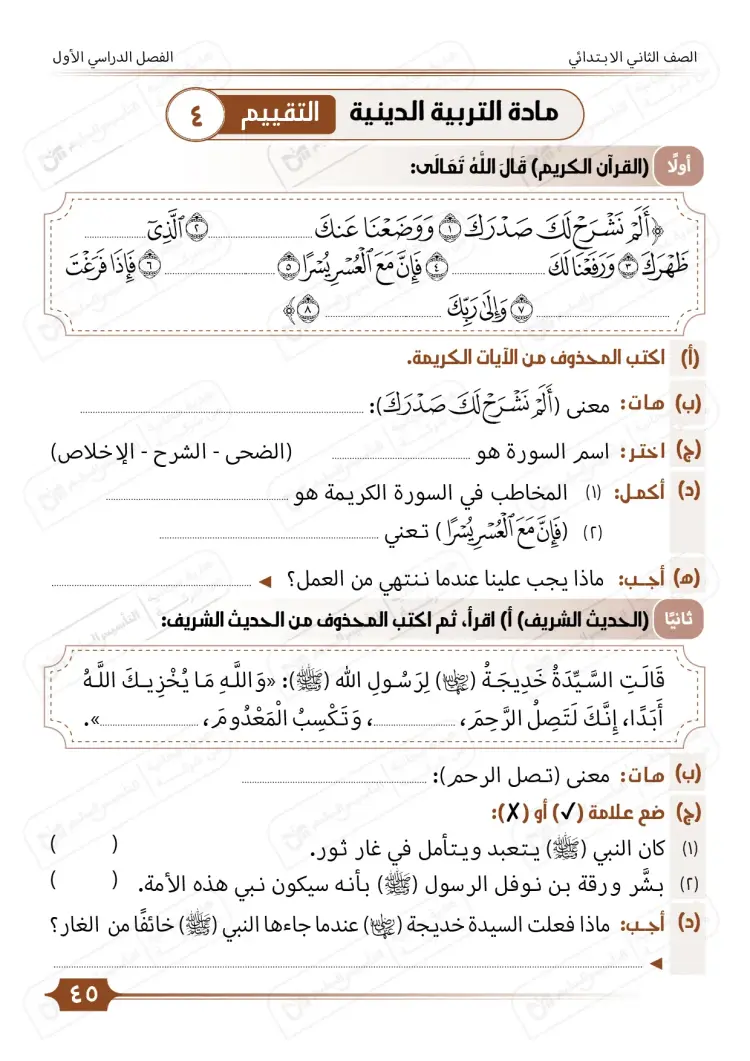 الصف الثاني الابتدائي
الفصل الدراسي الأول
مادة التربية الدينية التقييم ٤
أولًا (القرآن الكريم) قَالَ اللَّهُ تَعَالَى:
﴿أَلَمْ نَشْرَحْ لَكَ صَدْرَكَ ١ وَوَضَعْنَا عَنكَ .................... ٢ ٱلَّذِىٓ ....................
ظَهْرَكَ ٣ وَرَفَعْنَا لَكَ .................... ٤ فَإِنَّ مَعَ ٱلْعُسْرِ يُسْرًا ٥ .................... ٦ فَإِذَا فَرَغْتَ
.................... ٧ وَإِلَىٰ رَبِّكَ .................... ٨﴾
(أ) اكتب المحذوف من الآيات الكريمة.
(ب) هات: معنى (أَلَمْ نَشْرَحْ لَكَ صَدْرَكَ): ....................
(ج) اختر: اسم السورة هو .................... (الضحى - الشرح - الإخلاص)
(د) أكمل: (١) المخاطب في السورة الكريمة هو ....................
(٢) (فَإِنَّ مَعَ ٱلْعُسْرِ يُسْرًا) تعني ....................
(هـ) أجب: ماذا يجب علينا عندما ننتهي من العمل؟ ◄ ....................
ثانيًا (الحديث الشريف) أ) اقرأ، ثم اكتب المحذوف من الحديث الشريف:
قَالَتِ السَّيِّدَةُ خَدِيجَةُ (رضي الله عنها) لِرَسُولِ الله (ﷺ): «وَاللَّهِ مَا يُخْزِيكَ اللَّهُ
أَبَدًا، إِنَّكَ لَتَصِلُ الرَّحِمَ، ....................، وَتَكْسِبُ الْمَعْدُومَ، ....................».
(ب) هات: معنى (تصل الرحم): ....................
(ج) ضع علامة (✓) أو (✗):
(١) كان النبي (ﷺ) يتعبد ويتأمل في غار ثور. ( )
(٢) بشَّر ورقة بن نوفل الرسول (ﷺ) بأنه سيكون نبي هذه الأمة. ( )
(د) أجب: ماذا فعلت السيدة خديجة (رضي الله عنها) عندما جاءها النبي (ﷺ) خائفًا من الغار؟
◄ ....................
٤٥